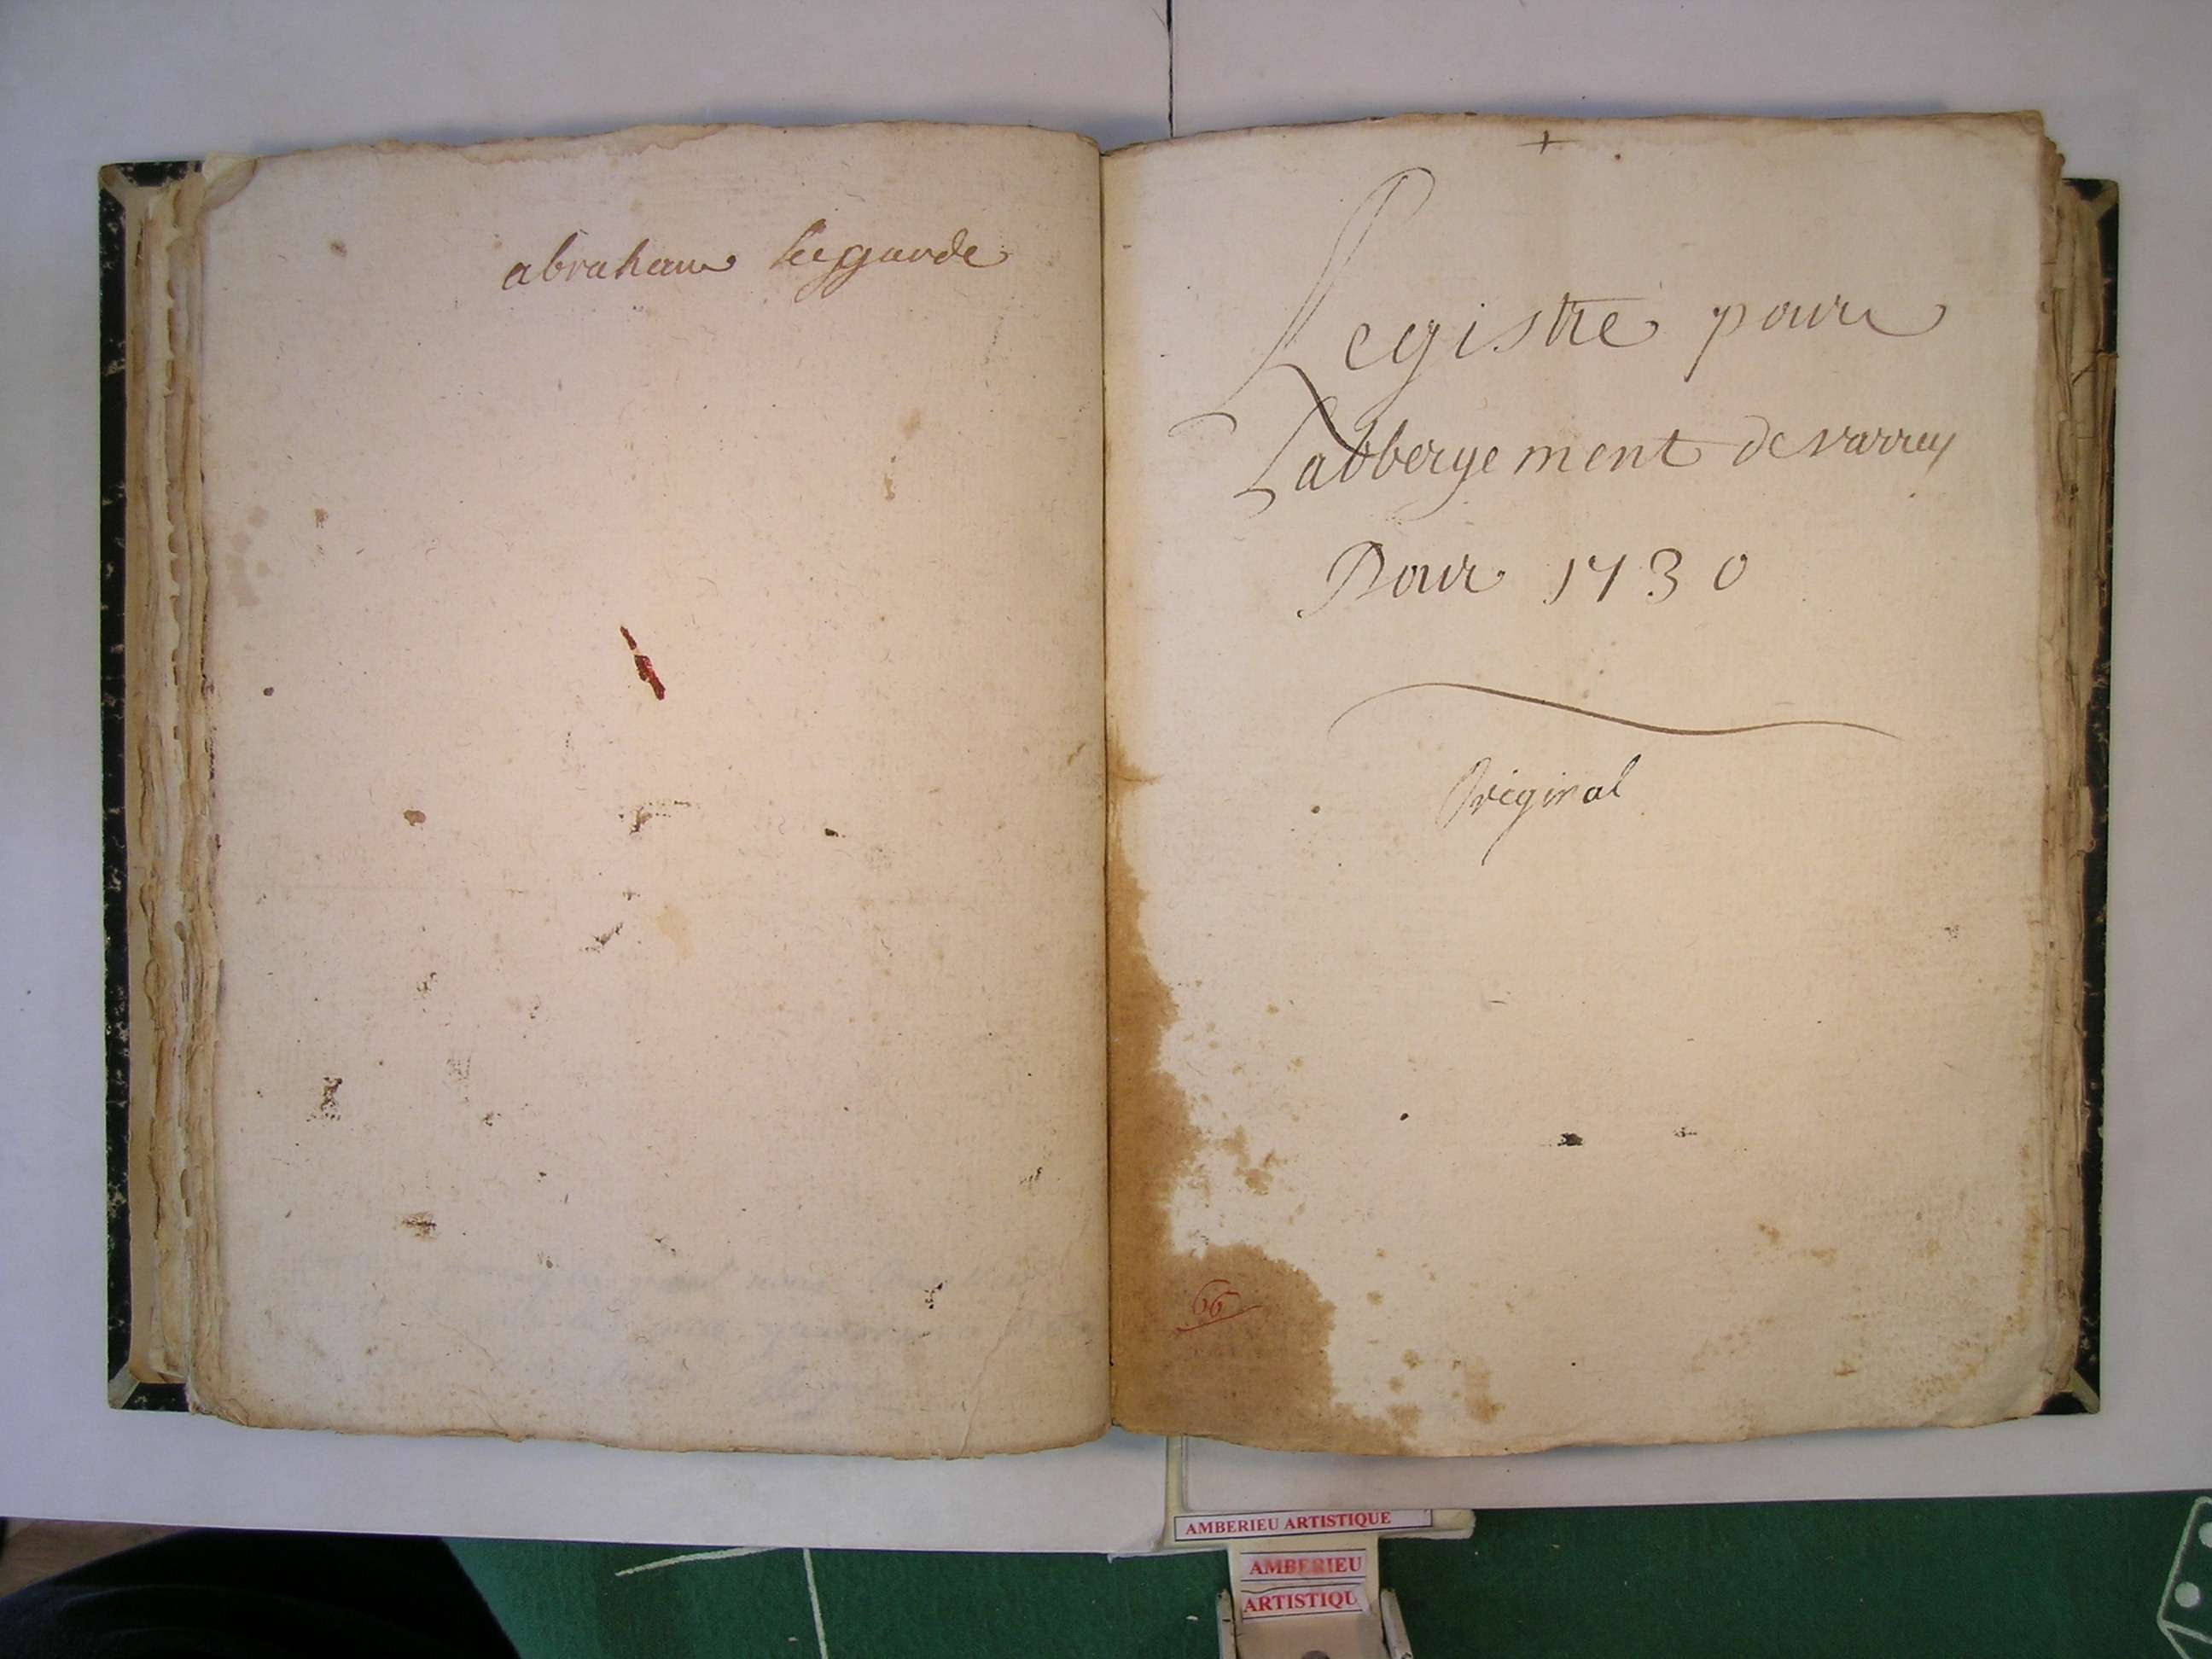 abraham
Registre pour
Labbergement de varrey
Pour 1730
Original
66
AMBERIEU ARTISTIQUE
AMBERIEU
ARTISTIQU